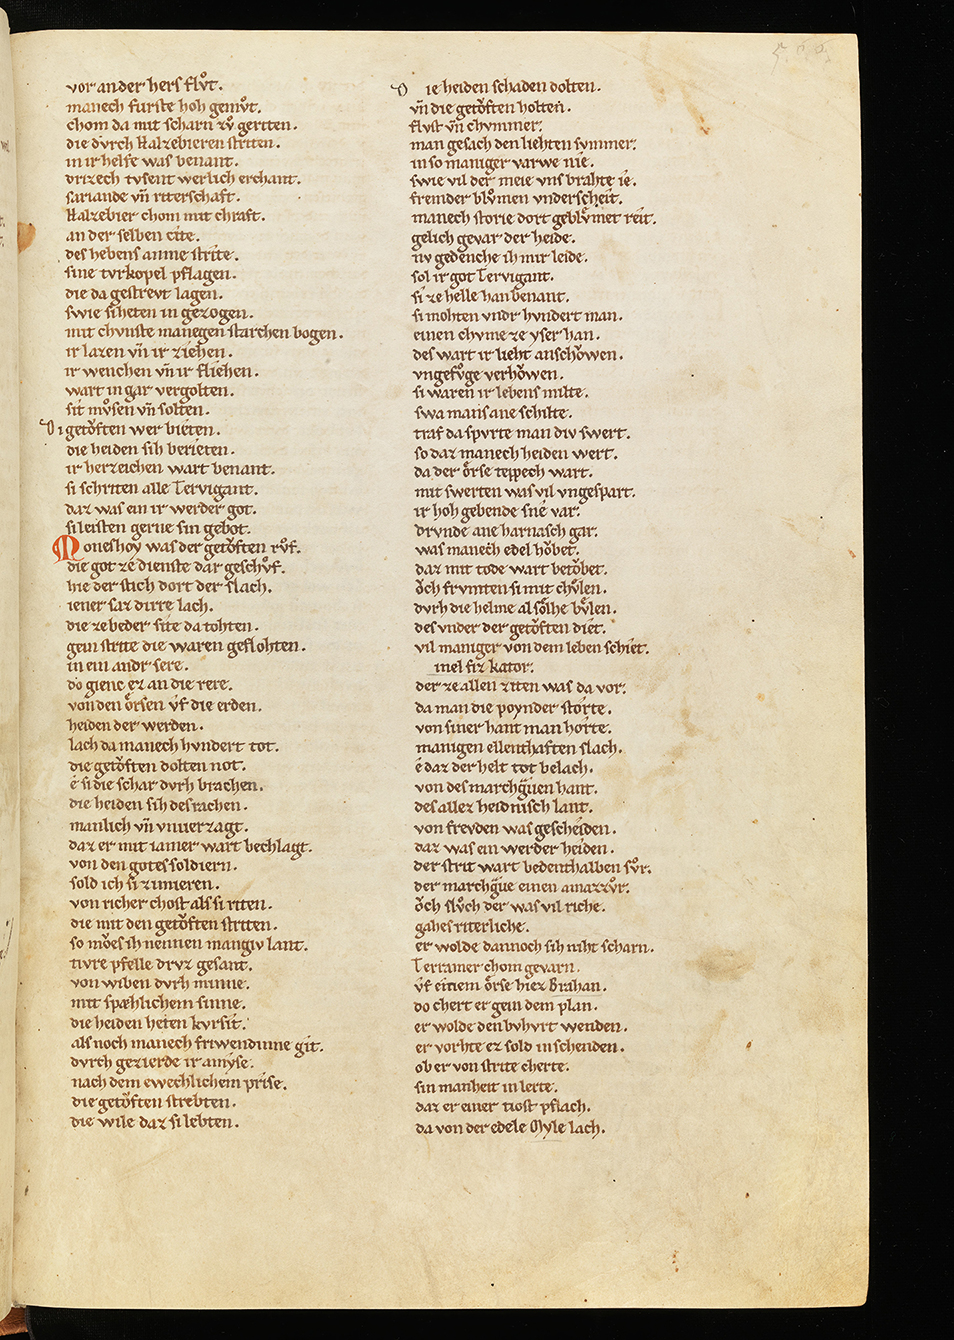 vor ander hers flůt.
manech furste hoh gemůt.
chom da mit scharn zů geriten.
die dvrch Halzebieren striten.
in ir helfe was benant.
drizech tvsent werlich erchant.
sariande vñ riterschaft.
Halzebier chom mit chraft.
an der selben cite.
des hebens anme strite.
sine tvrkopel pflagen.
die da gestrevt lagen.
swie si heten in gezogen.
mit chvnste manegen starchen bogen.
ir lazen vñ ir ziehen.
ir wenchen vñ ir fliehen.
wart in gar vergolten.
sit můsen vñ solten.
Di getŏften wer bieten.
die heiden sih berieten.
ir herzeichen wart benant.
si schriten alle Tervigant.
daz was ein ir werder got.
si leisten gerne sin gebot.
Moneshoy was der getŏften růf.
die got ze dienste dar geschůf.
hie der stich dort der slach.
iener saz dirre lach.
die ze beder site da tohten.
gein strite die waren geflohten.
in ein andr sere.
do gienc ez an die rere.
von den ŏrsen vf die erden.
heiden der werden.
lach da manech hvndert tot.
die getŏften dolten not.
ê si die schar dvrh brachen.
die heiden sih des rachen.
manlich vñ vnuerzagt.
daz er mit iamer wart bechlagt.
von den gotes soldiern.
sold ich si zimieren.
von richer chost als si riten.
die mit den getŏften striten.
so mŏes ih nennen mangiv lant.
tivre pfelle drvz gesant.
von wiben dvrh minne.
mit spæhlichem sinne.
die heiden heten kvrsit.
als noch manech friwendinne git.
dvrch gezierde ir amyse.
nach dem ewechlichem prise.
die getŏften strebten.
die wile daz si lebten.
Die heiden schaden dolten.
vñ die getŏften holten.
flvst vñ chvmmer.
man gesach den liehten svmmer.
in so maniger varwe nie.
swie vil der meie vns brahte ie.
fremder blůmen vnderscheit.
manech storie dort geblůmet reit.
gelich gevar der heide.
nv gedenche ih mir leide.
sol ir got Tervigant.
si ze helle han benant.
si mohten vndr hvndert man.
einen chvme ze yser han.
des wart ir lieht anschŏwen.
vngefůge verhŏwen.
si waren ir lebens milte.
swa mans ane schilte.
traf da spvrte man div swert.
so daz manech heiden wert.
da der ŏrse teppech wart.
mit swerten was vil vngespart.
ir hoh gebende sne var.
drvnde ane harnasch gar.
was manech edel hŏbet.
daz mit tode wart betŏbet.
ŏch frvmten si mit chůlen.
dvrh die helme al solhe bůlen.
des vnder der getŏften diet.
vil maniger von dem leben schiet.
inel fiz kator.
der ze allen ziten was da vor.
da man die poynder storte.
von siner hant man horte.
manigen ellenthaften slach.
ê daz der helt tot belach.
von des marchgͣuen hant.
des allez heidnisch lant.
von frevden was gescheiden.
daz was ein werder heiden.
der strit wart bedenthalben sůr.
der marchgͣue einen amazzůr.
ŏch slůch der was vil riche.
gahes riterliche.
er wolde dannoch sih niht scharn.
Terramer chom gevarn.
vf einem ŏrse hiez Brahan.
do chert er gein dem plan.
er wolde den bvhvrt wenden.
er vorhte ez sold in schenden.
ob er von strite cherte.
sin manheit in lerte.
daz er einer tiost pflach.
da von der edele Myle lach.